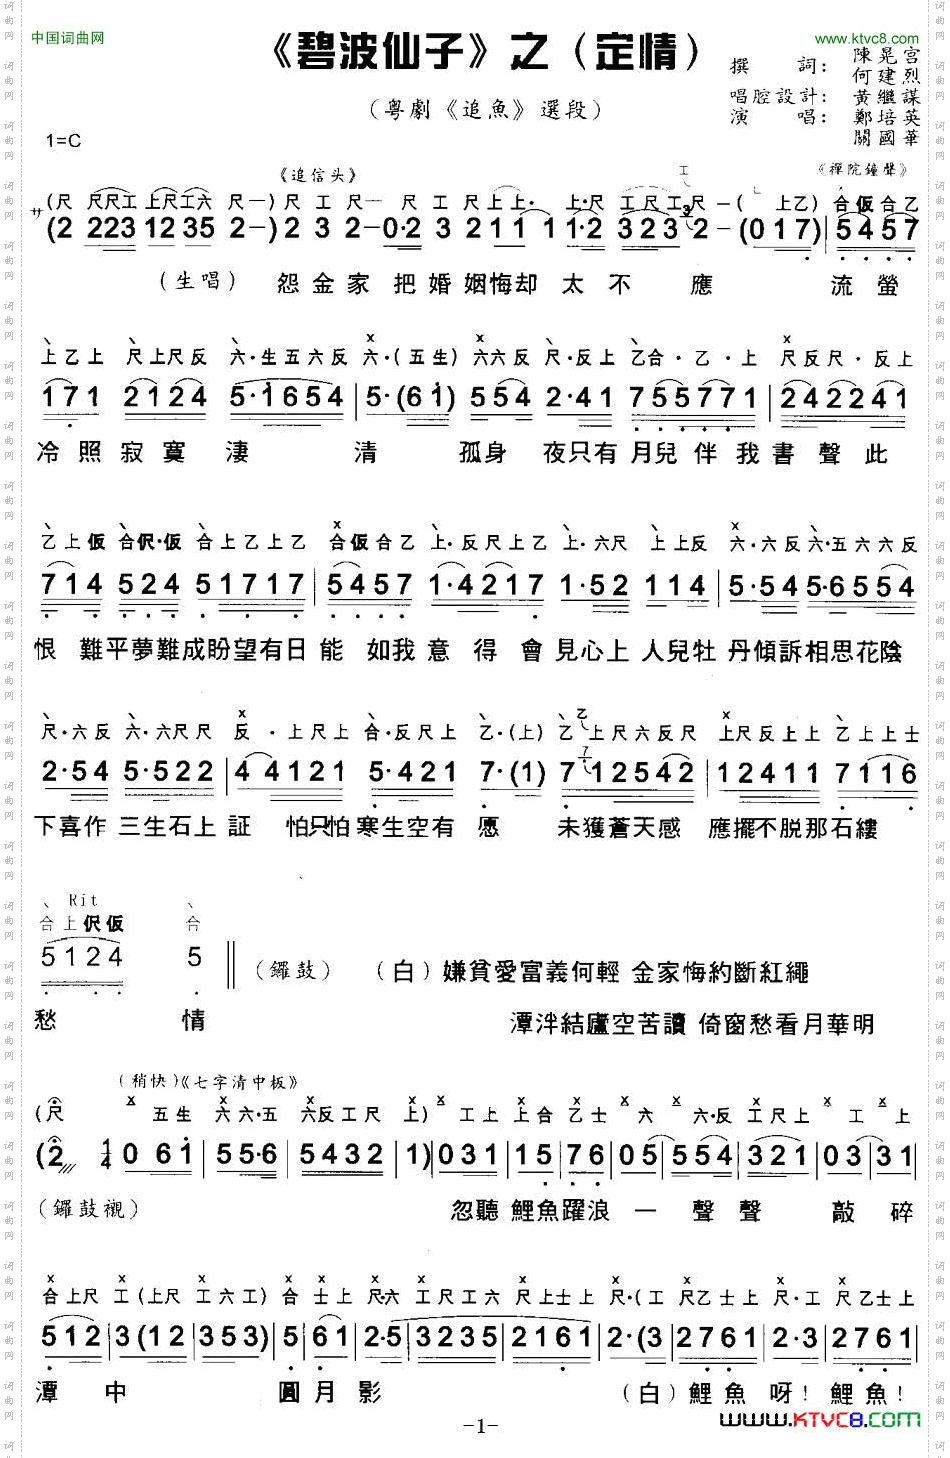 中国词曲网
www.ktvc8.com
《碧波仙子》之（定情）
（粵劇《追魚》選段）
撰 詞：陳晃宮 何建烈
唱腔設計：黃繼謀
演 唱：鄭培英 關國華
1=C
《追信头》 《禪院鐘聲》
（尺 尺尺工 上尺工六 尺一）尺 工 尺一 尺 工 尺上上· 上·尺 工尺工尺一（ 上乙）合仮合乙
サ (2 223 1235 2-) 2 3 2-0·2 3 211 11·2 3232-(017) | 5457
（生唱） 怨 金 家 把 婚 姻悔却 太 不 應 流 螢
上乙上 尺上尺反 六·生五六反 六·（五生）六六反 尺·反上 乙合·乙·上 尺反尺·反上
171 2124 5·1654 | 5·(61) 554 2·41 755771 | 242241
冷 照 寂 寞 淒 清 孤身 夜只有 月兒 伴 我 書 聲 此
乙上仮 合伬·仮 合上乙上乙 合仮合乙 上·反尺上乙 上·六尺 上上反 六·六反六·五六六反
714 524 51717 | 5457 1·4217 1·52 114 | 5·545·6554
恨 難平夢難成盼望有日 能 如我 意 得 會 見心上 人兒牡 丹傾訴相思花陰
尺·六反 六·六尺尺 反·上尺上 合·反尺上 乙·（上）乙上尺六反尺 上尺反上上 乙上上士
2·54 5·522 | 4 4121 5·421 7·(1) 712542 | 12411 7116
下喜作 三生石上 証 怕只怕 寒生空有 愿 未獲蒼天感 應擺不脱那石縷
Rit
合上伬仮 合
5124 5
（鑼鼓） （白）嫌貧愛富義何輕 金家悔約斷紅繩
愁 情 潭泮結廬空苦讀 倚窗愁看月華明
（稍快）《七字清中板》
（尺 五生 六六·五 六反工尺 上） 工上 上合 乙士 六 六·反 工尺上 工 上
(2 1/4 0 61 | 55·6 | 5432 | 1) | 031 | 15 | 76 | 05 | 554 | 321 | 03 | 31
（鑼鼓襯） 忽聽 鯉魚躍浪 一 聲 聲 敲 碎
合上尺 工（上尺 工六工）合 士上 尺·六 工尺工六 尺上士上 尺·（工 尺乙士上 尺·工 尺乙士上
512 | 3(12 | 353) | 5 | 61 | 2·5 | 3235 | 2161 | 2·(3 | 2761 | 2·3 | 2761
潭 中 圓月影 （白）鯉 魚 呀！鯉魚！
-1-
www.KTVC8.com